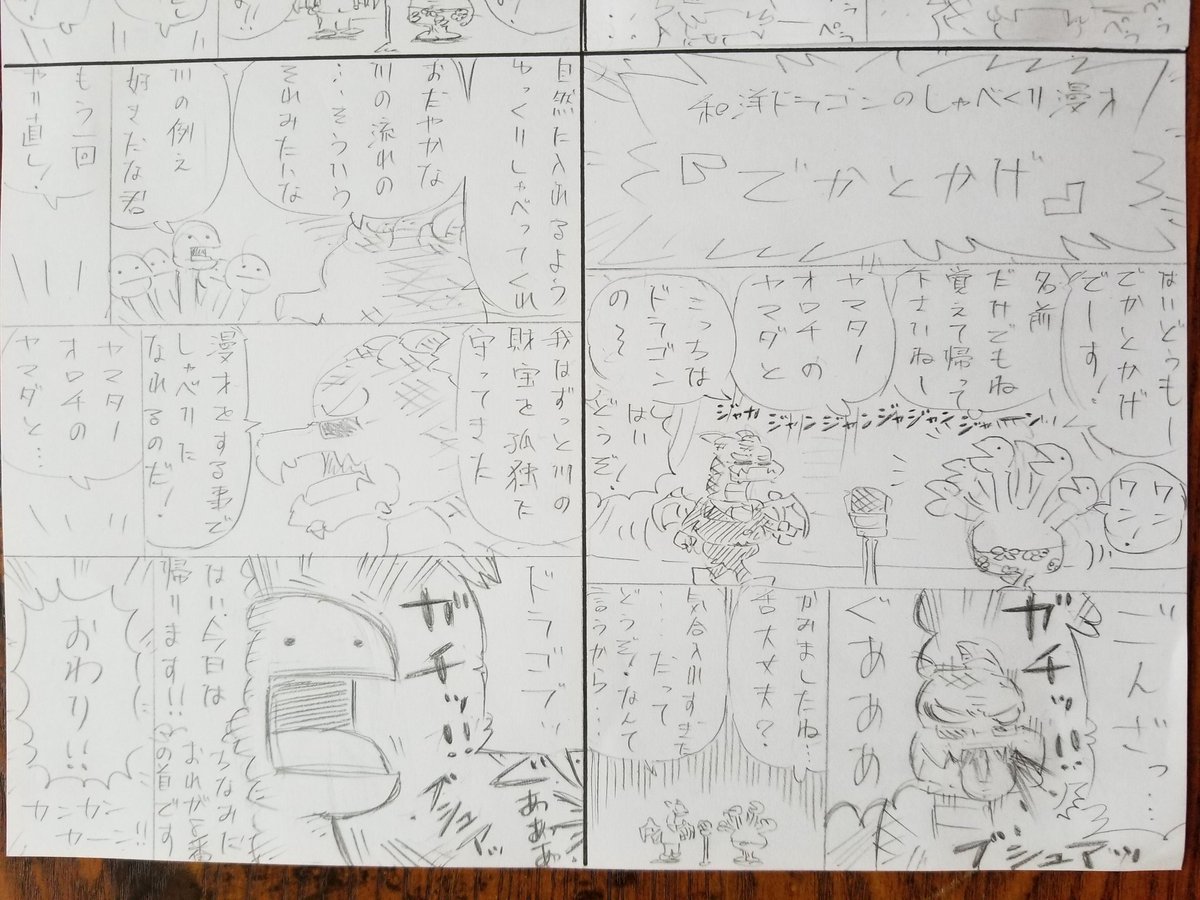 和洋ドラゴンのしゃべくり漫才
『でかとかげ』
はいどうもー
でかとかげ
でーす!
名前
だけでもね
覚えて帰って
下さいねし
ヤマター
オロチの
ヤマダと
こっちは
ドラゴン
のそ
はい
どうぞ!
ジャカ
ジャンジャンジャジャンジャーン
ワン
ワン
ごんざっ…
ガチッ!!
ブシュアッ
ぐあああ
かみましたね…
舌大丈夫?
気合入れすぎた
……だって
どうぞ!なんて
言うから…
自然に入れるよう
ゆっくりしゃべってくれ
おだやかな
川の流れの
…そういう
それみたいな
川の例え
好きだな君
もう一回
ヤリ直し!
我はずっと川の
財宝を孤独に
守ってきた
漫才をする事で
しゃべりに
なれるのだ!
ヤマター
オロチの
ヤマダと…
ドラゴブッ
ガチッ!!
ブシュアッ
ぐあああ
はい今日は
帰ります!!
ちなみに
おれが
の首です
おわり!!